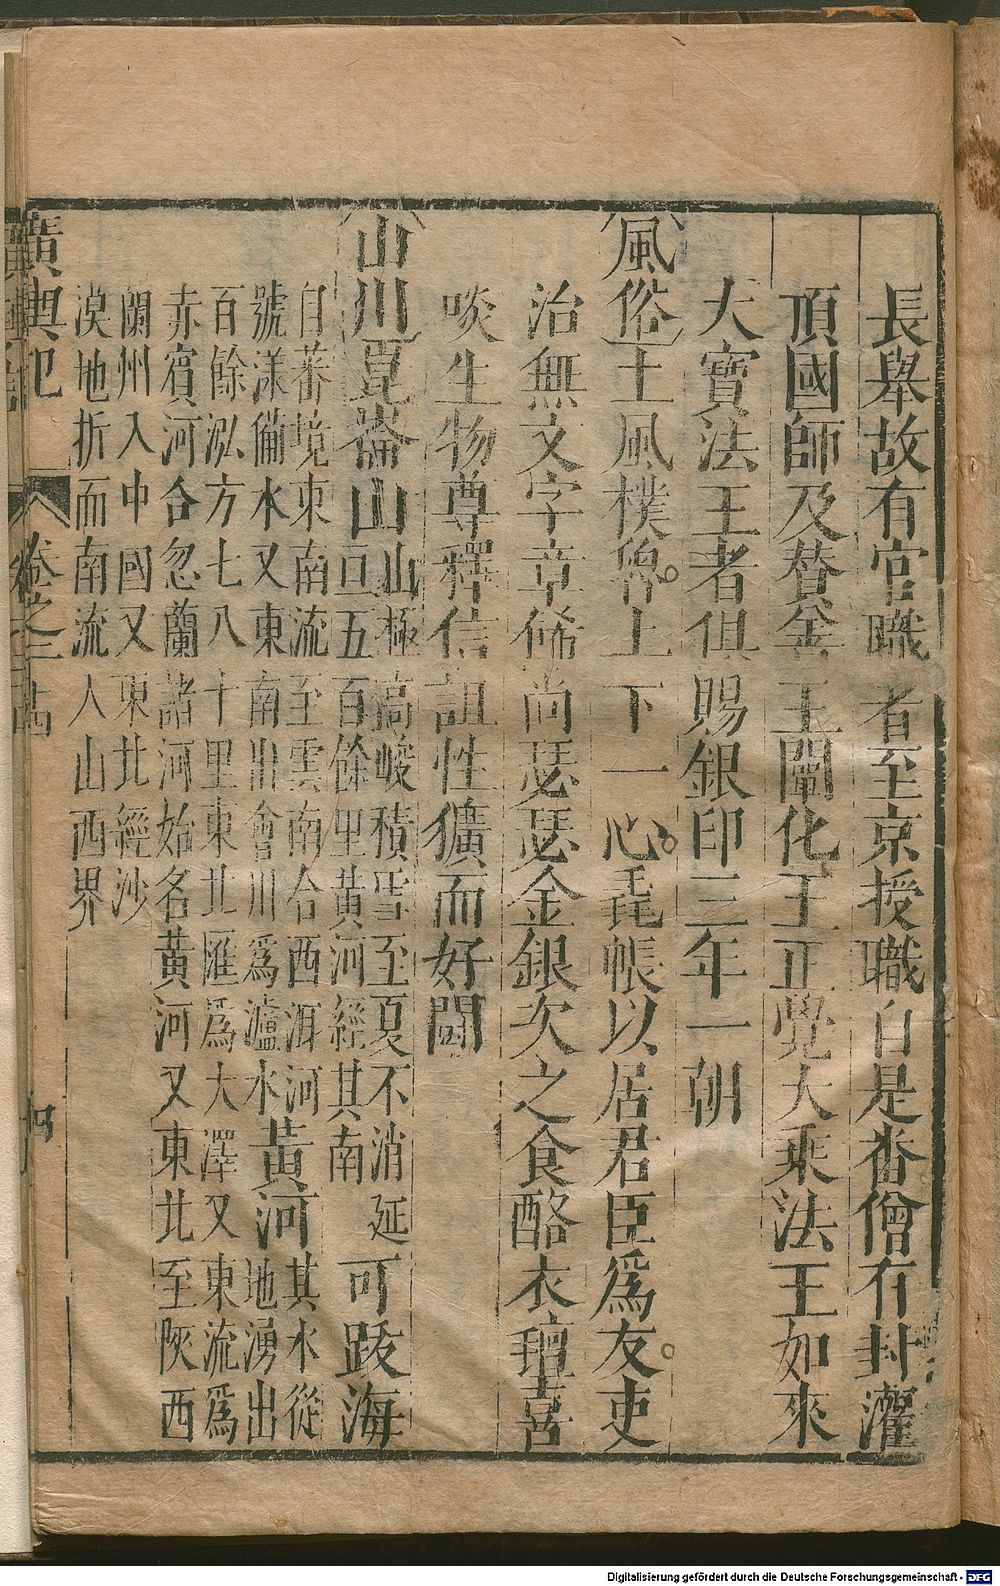 長舉故有官職者至京授職自是番僧有封灌
頂國師及贊善王闡化王正覺大乘法王如來
大寶法王者俱賜銀印三年一朝
風俗土風樸魯上下一心毳帳以居君臣爲友吏
治無文字章俙尚瑟瑟金銀次之食酪衣氊喜
啖生物尊釋信詛性獷而好鬭
山川崑崙山山極高峻積雪至夏不消延
亘五百餘里黃河經其南
可跋海
其水從
自蕃境東南流至雲南合西洱河
號漾備水又東南出會川爲瀘水
黃河
地湧出
百餘泓方七八十里東北匯爲大澤又東流爲
赤賓河合忽蘭諸河始名黃河又東北至陝西
蘭州入中國又東北經沙
漠地折而南流入山西界
廣輿記
卷之二
Digitalisierung gefördert durch die Deutsche Forschungsgemeinschaft - DFG